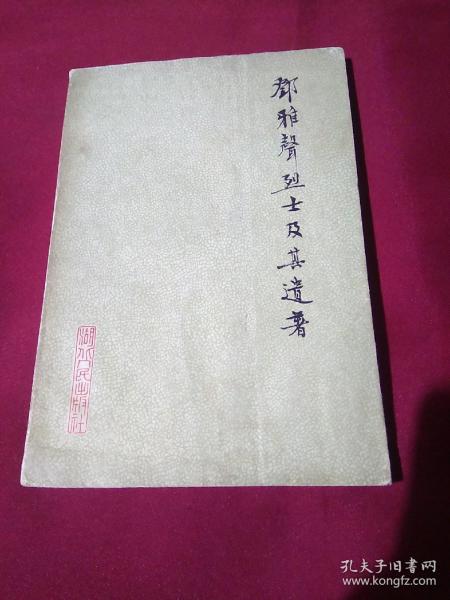 鄧雅聲烈士及其遺著
湖北人民出版社
孔夫子旧书网
www.kongfz.com